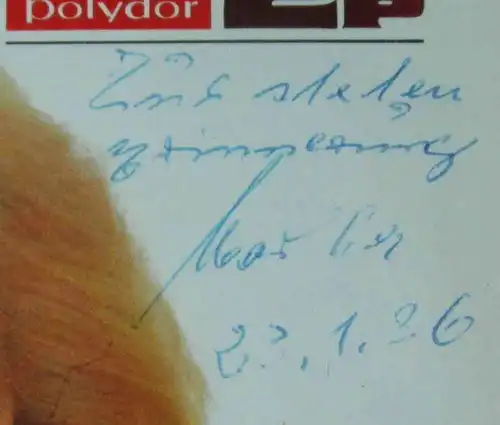 polydor
LP
Zur steten
Erinnerung
23.1.76